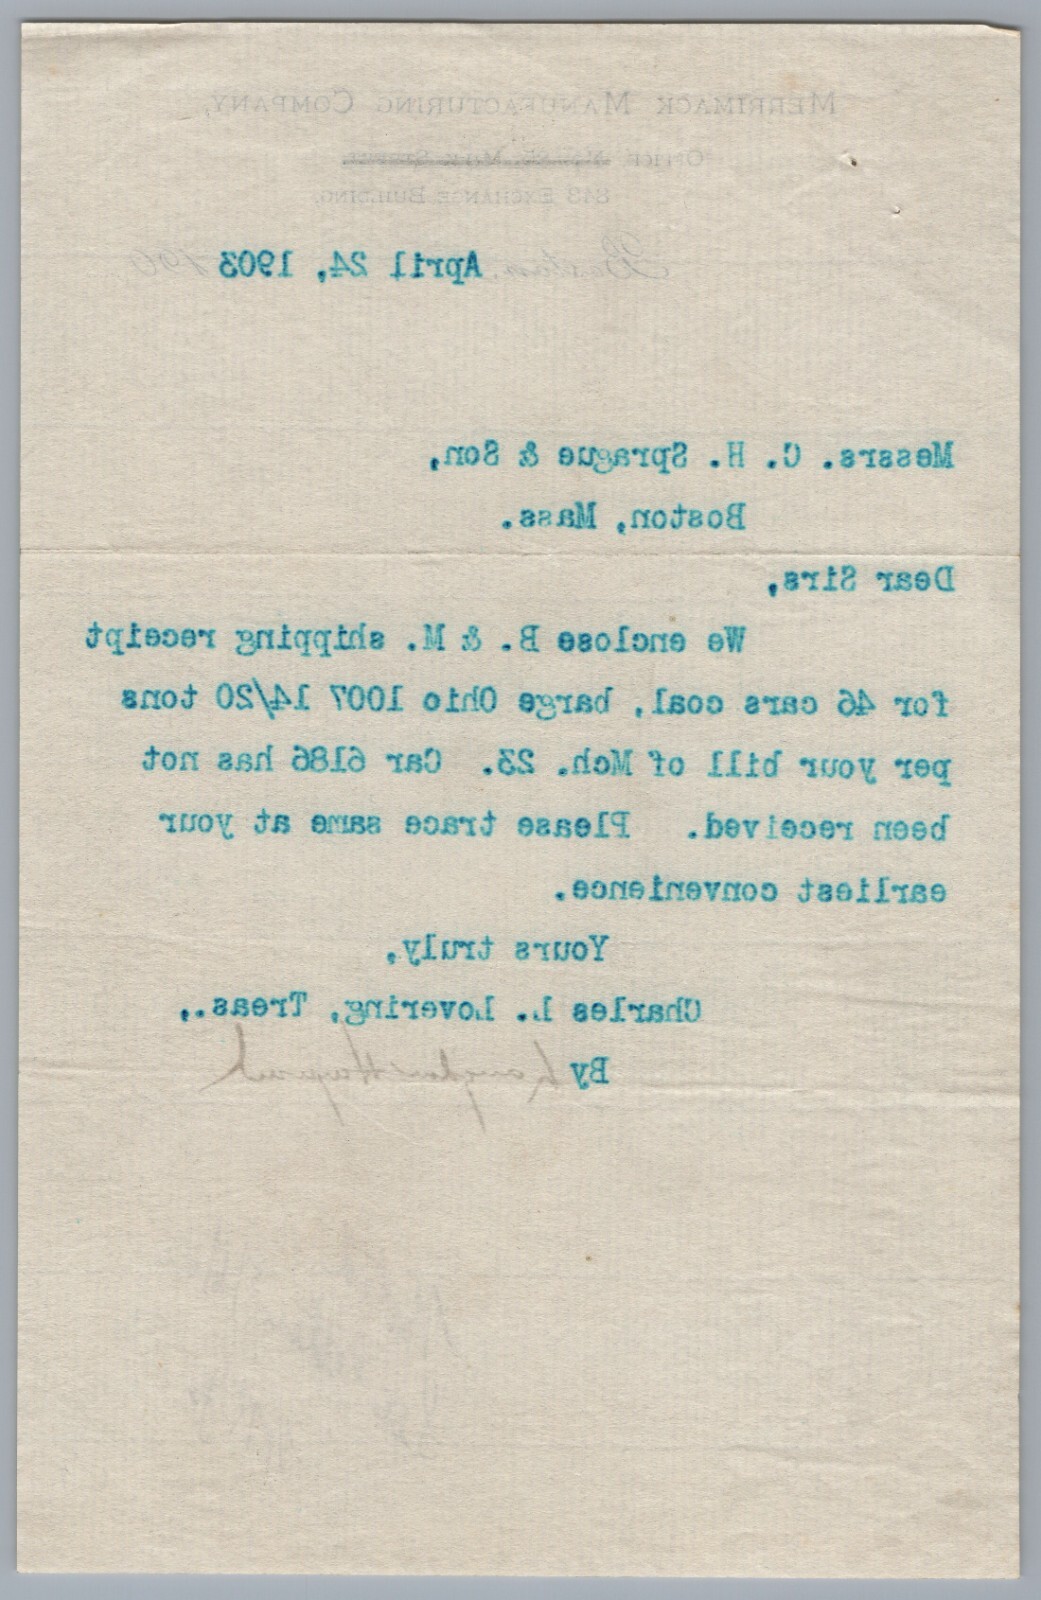 MERRIMACK MANUFACTURING COMPANY,
OFFICE MILK STREET.
843 EXCHANGE BUILDING.
Boston, April 24, 1903 190
Messrs. C. H. Sprague & Son,
Boston, Mass.
Dear Sirs,
We enclose B. & M. shipping receipt
for 46 cars coal, barge Ohio 1007 14/20 tons
per your bill of Mch. 23. Car 6186 has not
been received. Please trace same at your
earliest convenience.
Yours truly,
Charles L. Lovering, Treas.,
By